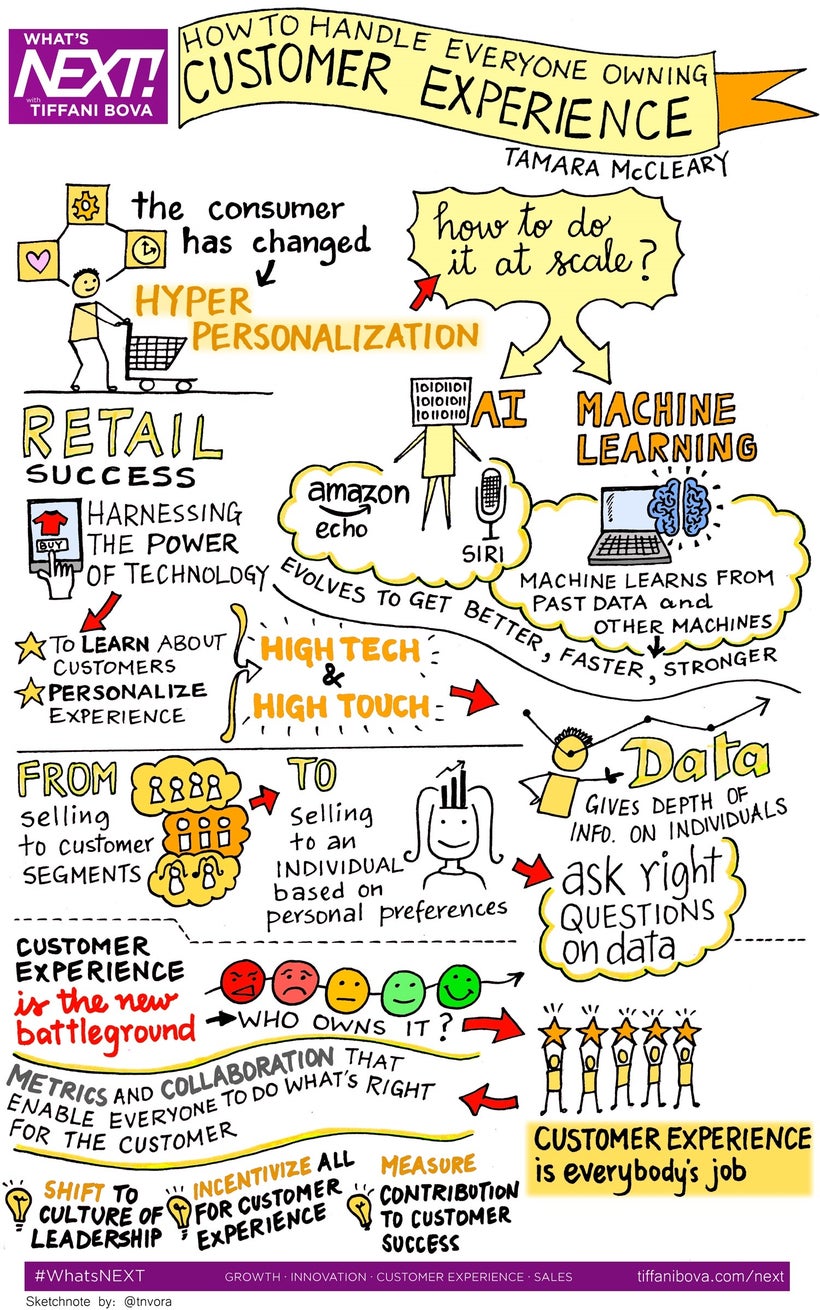 WHAT'S
NEXT!
with
TIFFANI BOVA
HOW TO HANDLE EVERYONE OWNING
CUSTOMER EXPERIENCE
TAMARA McCLEARY
the consumer
has changed
HYPER
PERSONALIZATION
how to do
it at scale?
10101101
10101011
10110110
AI
MACHINE
LEARNING
amazon
echo
SIRI
MACHINE LEARNS FROM
PAST DATA and
OTHER MACHINES
EVOLVES TO GET BETTER, FASTER, STRONGER
RETAIL
SUCCESS
BUY
HARNESSING
THE POWER
OF TECHNOLOGY
TO LEARN ABOUT
CUSTOMERS
PERSONALIZE
EXPERIENCE
HIGH TECH
&
HIGH TOUCH
Data
GIVES DEPTH OF
INFO. ON INDIVIDUALS
FROM
selling
to customer
SEGMENTS
TO
selling
to an
INDIVIDUAL
based on
personal preferences
ask right
QUESTIONS
on data
CUSTOMER
EXPERIENCE
is the new
battleground
WHO OWNS IT?
CUSTOMER EXPERIENCE
is everybody's job
METRICS AND COLLABORATION THAT
ENABLE EVERYONE TO DO WHAT'S RIGHT
FOR THE CUSTOMER
SHIFT TO
CULTURE OF
LEADERSHIP
INCENTIVIZE ALL
FOR CUSTOMER
EXPERIENCE
MEASURE
CONTRIBUTION
TO CUSTOMER
SUCCESS
#WhatsNEXT
GROWTH · INNOVATION · CUSTOMER EXPERIENCE · SALES
tiffanibova.com/next
Sketchnote by: @tnvora